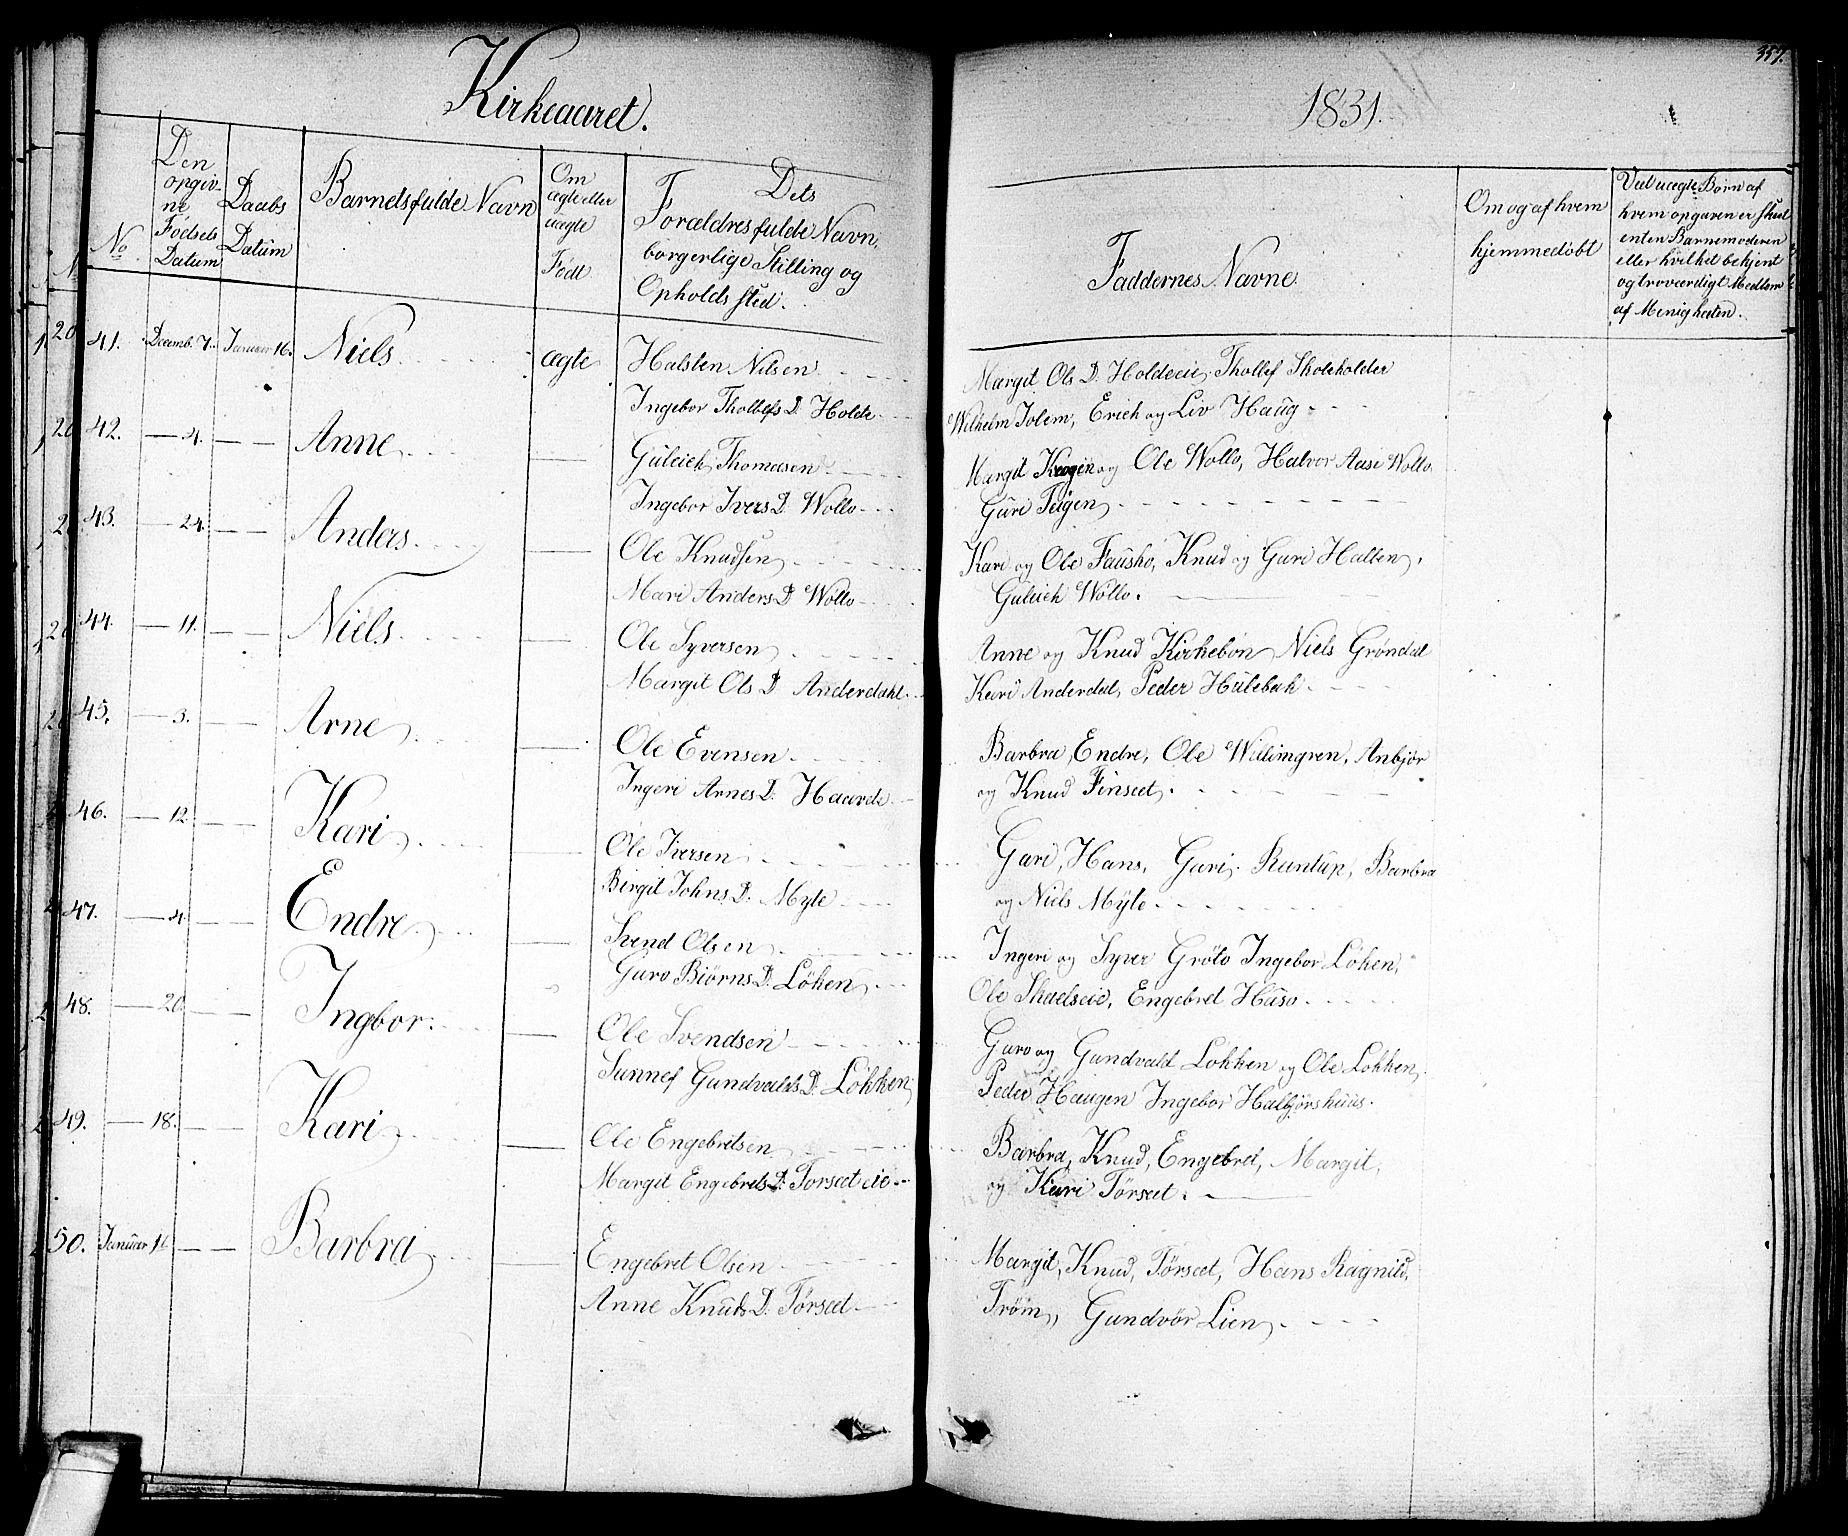 Kirkeaaret.
1831.
357.
No
Den
opgiv-
ne
Födsels
Datum
Daabs
Datüm
Barnets fulde Navn
Om
ægte eller
üægte
Födt
Dets
Forældres fulde Navn,
borgerlige Stilling og
Opholds sted.
Faddernes Navne.
Om og af hvem
hjemmedöbt
Ved uægte Börn af
hvem opgaven er skeet
enten Barnemoderen
eller hvilket bekjent
og troværdigt Medlem
af Menigheden.
41. Decemb. 7. Januar 16. Niels ægte Halsten Nilsen
Ingebor Thollefs D. Holde
Margit Ols D. Holdeeie, Thollef Skoleholder
Wilhelm Tolem, Erich og Liv Haug
42. — 4. — — Anne — Guleich Thomasen
Ingebor Ivers D. Wollo
Margit og Ole Wollo, Halvor Aasi Wollo
Guri Teigen
43. — 24. — — Anders — Ole Knudsen
Mari Anders D. Wollo
Kari og Ole Fausko, Knud og Guri Halten,
Guleich Wollo.
44. — 11. — — Niels — Ole Syversen
Margit Ols D. Anderdahl
Anne og Knud Kirkebön Niels Gröndal
Kari Anderdal, Peder Hülebak
45. — 3. — — Arne — Ole Evensen
Ingeri Arnes D. Haarde
Barbra, Endre, Ole Willimgren, Anbjör
og Knud Finseet
46. — 12. — — Kari — Ole Iversen
Birgit Johns D. Myte
Guri, Hans, Guri Rantüp, Barbra
og Niels Myte
47. — 4. — — Endre — Svend Olsen
Guro Biörns D. Löken
Ingeri og Syver Gröto Ingebor Löken,
Ole Skaelseie, Engebret Hüso
48. — 20. — — Ingbor. — Ole Svendsen
Sunnef Gundvalds D. Lökken
Guro og Gundvald Lokken og Ole Lokken,
Peder Haugen Ingebor Halbjörshuus.
49. — 18. — — Kari — Ole Engebretsen
Margit Engebrets D. Torseet eie
Barbra, Knud, Engebret, Margit,
og Kari Törseet.
50. Januar — — Barbra — Engebret Olsen
Anne Knuds D. Törseet
Margit, Knud, Törseet, Hans Ragnild,
Tröim, Gundvör Lien